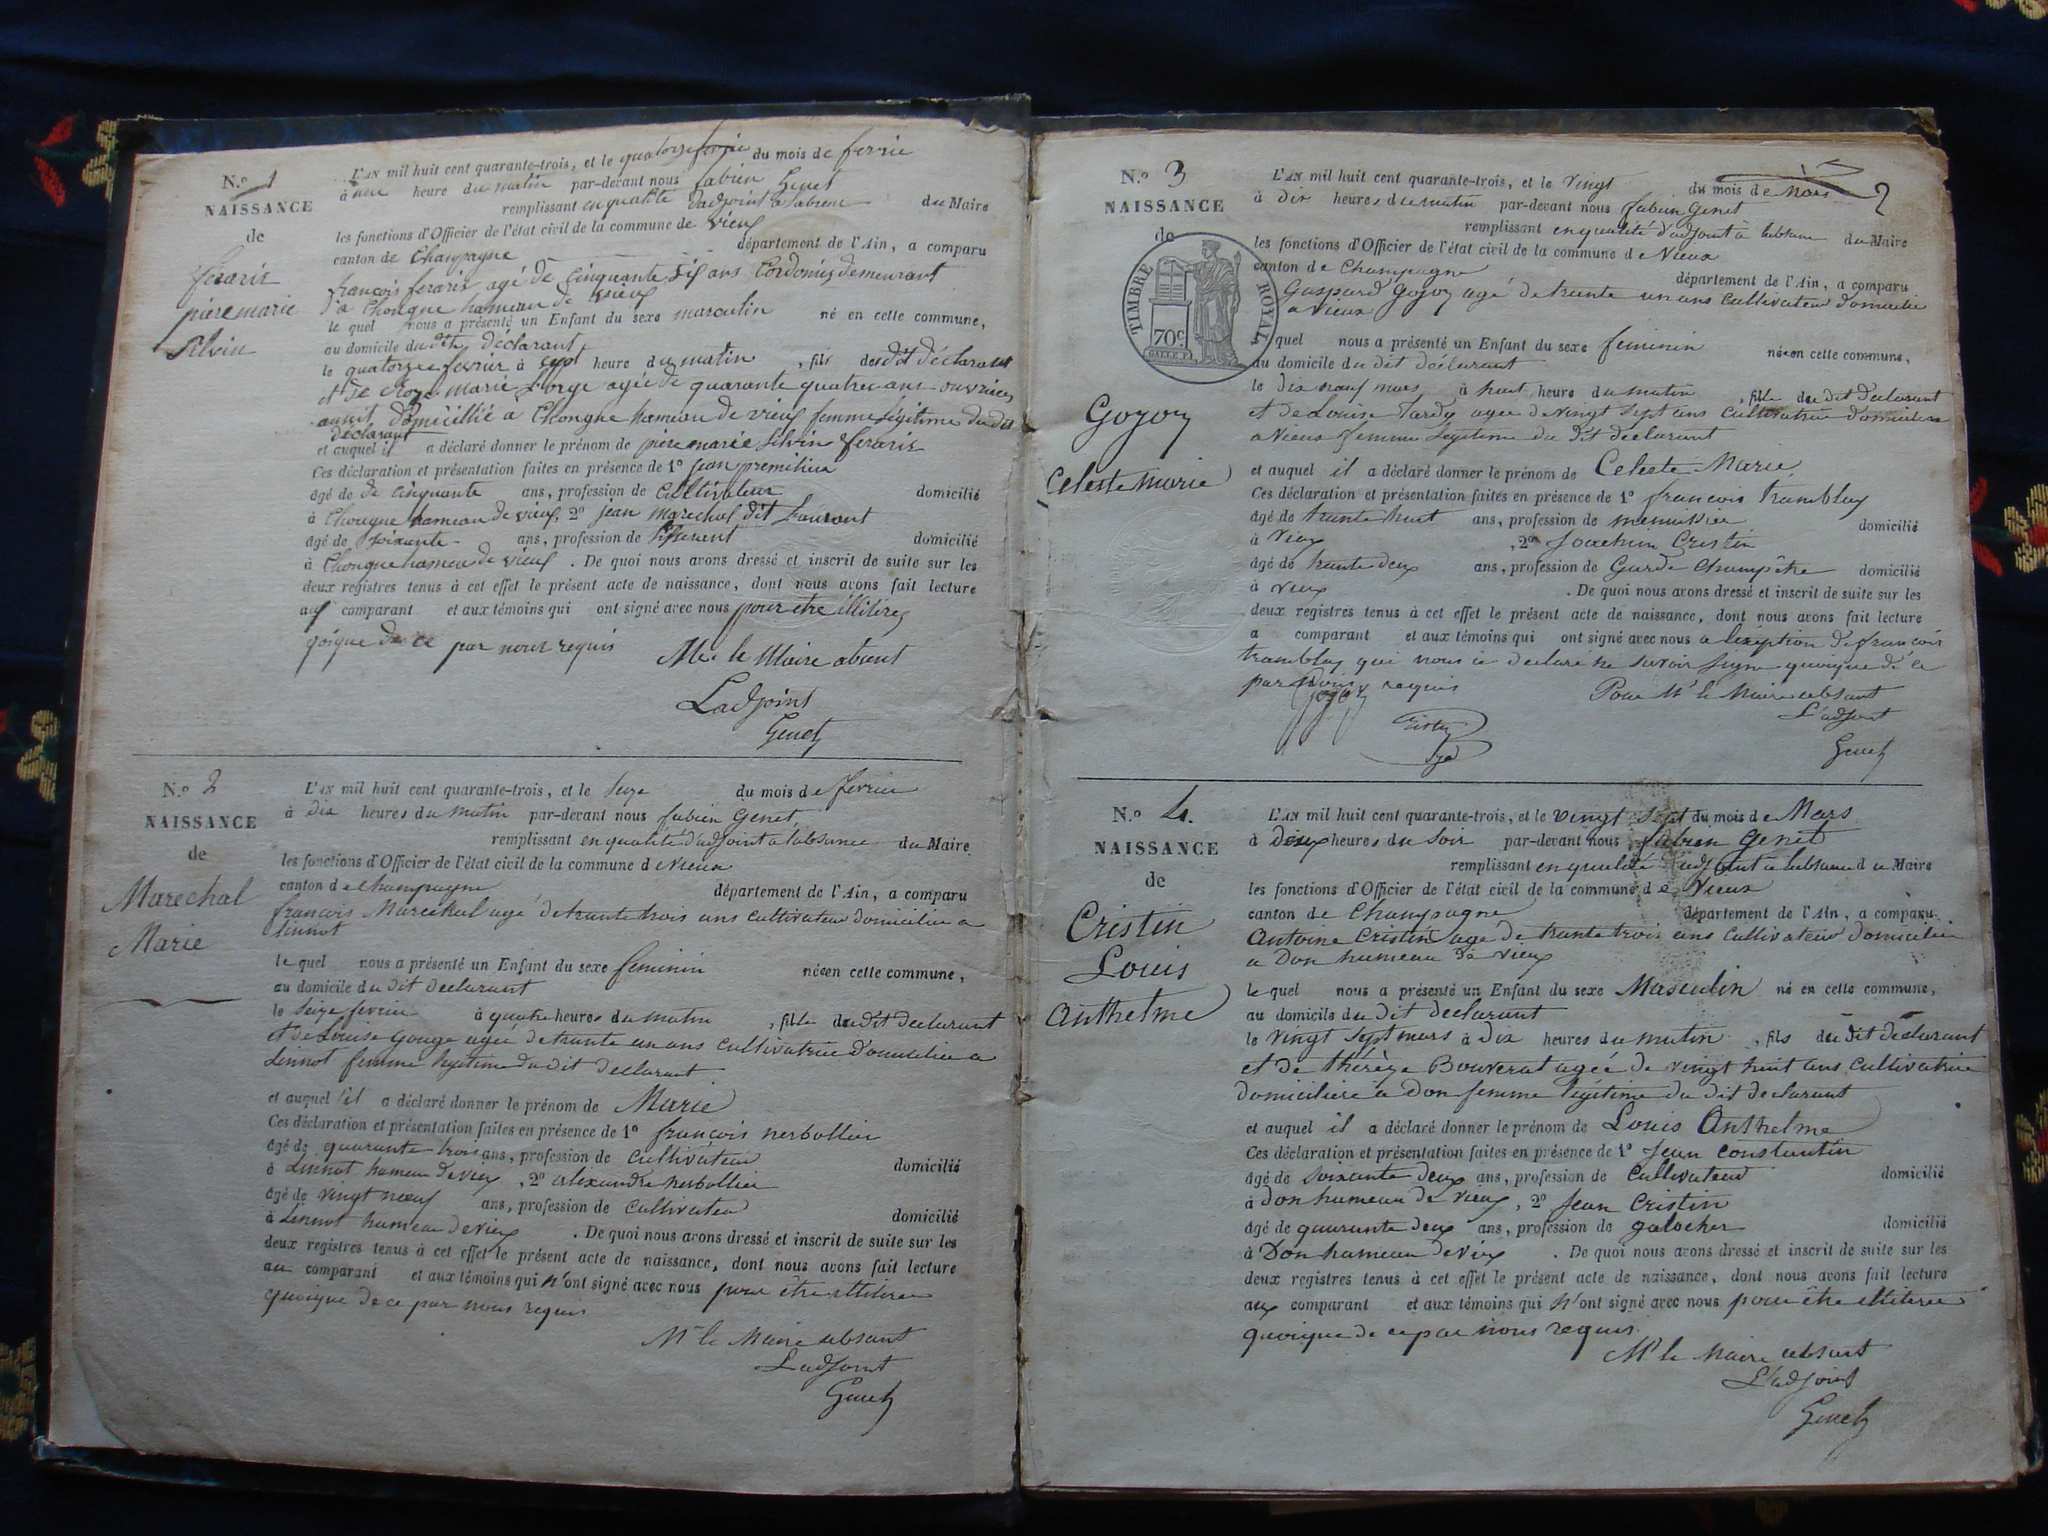 N.º 1
NAISSANCE
de
feraris
piere marie
Silvin
L'AN mil huit cent quarante-trois, et le quatorze du mois de fevrie
à une heure du matin par-devant nous fabien Genet
remplissant en qualité d'adjoint a labsence du Maire
les fonctions d'Officier de l'état civil de la commune de vieux
canton de Champagne département de l'Ain, a comparu
françois feraris agé de Cinquante six ans Cordonnier demeurant
a Chongne hameau de vieux
le quel nous a présenté un Enfant du sexe masculin né en cette commune,
au domicile du dit declarant
le quatorze fevrier à heure du matin, fils du dit déclarant
et de marie agée de quarante quatre ans ouvriere
domicillié a Chongne hameau de vieux femme légitime du dit
declarant
et auquel il a déclaré donner le prénom de piere marie Silvin feraris
Ces déclaration et présentation faites en présence de 1º jean premilieu
âgé de de cinquante ans, profession de Cultivateur domicilié
à Chongne hameau de vieux, 2º jean marechal dit
âgé de soixante ans, profession de domicilié
à Chongne hameau de vieux. De quoi nous avons dressé et inscrit de suite sur les
deux registres tenus à cet effet le présent acte de naissance, dont nous avons fait lecture
aux comparant et aux témoins qui ont signé avec nous pour etre illitéres
qoique de ce par nous requis
Mr. le Maire absent
Ladjoint
Genet
N.º 2
NAISSANCE
de
Marechal
Marie
L'AN mil huit cent quarante-trois, et le seize du mois de fevrier
à dix heures du matin par-devant nous fabien Genet
remplissant en qualité d'adjoint à labsance du Maire
les fonctions d'Officier de l'état civil de la commune de vieux
canton de champagne département de l'Ain, a comparu
francois Marechal agé de trante trois ans cultivateur domicilié a
Linnot
le quel nous a présenté un Enfant du sexe feminin née en cette commune,
au domicile du dit declarant
le seize fevrier à quatre heures du matin, fille du dit declarant
et de Louise Gouge agée de trante un ans cultivatrice domiciliée a
Linnot femme legitime du dit declarant
et auquel il a déclaré donner le prénom de Marie
Ces déclaration et présentation faites en présence de 1º françois nerbollier
âgé de quarante trois ans, profession de cultivateur domicilié
à Linnot hameau de vieux, 2º alexandre nerbollier
âgé de vingt neuf ans, profession de cultivateur domicilié
à Linnot hameau de vieux. De quoi nous avons dressé et inscrit de suite sur les
deux registres tenus à cet effet le présent acte de naissance, dont nous avons fait lecture
au comparant et aux témoins qui n'ont signé avec nous pour être illitérés
quoique de ce par nous requis
Mr le Maire absant
L'adjoint
Genet
N.º 3
NAISSANCE
de
TIMBRE ROYAL
70c
Gojoz
Celeste Marie
L'AN mil huit cent quarante-trois, et le vingt du mois de Mars
à dix heures du matin par-devant nous fabien Genet
remplissant en qualité d'adjoint à labsance du Maire
les fonctions d'Officier de l'état civil de la commune de Vieux
canton de Champagne département de l'Ain, a comparu
Gaspard Gojoz agé de trante un ans cultivateur domicilié
a vieux
quel nous a présenté un Enfant du sexe feminin née en cette commune,
au domicile du dit déclarant
le dix neuf mars à huit heure du matin, fille du dit declarant
et de Louise Tardy agée de vingt sept ans cultivatrice domiciliée
a vieux femme legitime du dit declarant
et auquel il a déclaré donner le prénom de Celeste Marie
Ces déclaration et présentation faites en présence de 1º francois tramblay
âgé de trante huit ans, profession de menuisier domicilié
à vieux, 2º Joachim Cristin
âgé de trante deux ans, profession de Garde Champêtre domicilié
à vieux. De quoi nous avons dressé et inscrit de suite sur les
deux registres tenus à cet effet le présent acte de naissance, dont nous avons fait lecture
a comparant et aux témoins qui ont signé avec nous a lexeption de françois
tramblay qui nous a declaré ne savoir signe quoique de ce
par Nous requis
Pour Mr le Maire absant
L'adjoint
Gojoz
Cristin
Genet
N.º 4.
NAISSANCE
de
Cristin
Louis
Anthelme
L'AN mil huit cent quarante-trois, et le vingt sept du mois de Mars
à Deux heures du soir par-devant nous fabien Genet
remplissant en qualité d'adjoint a labsance du Maire
les fonctions d'Officier de l'état civil de la commune de Vieux
canton de Champagne département de l'Ain, a comparu
Antoine Cristin agé de trante trois ans cultivateur domicilié
a Don hameau de vieux
le quel nous a présenté un Enfant du sexe Masculin né en cette commune,
au domicile du dit declarant
le vingt sept mars à dix heures du matin, fils du dit declarant
et de thérèze Bouverat agée de vingt huit ans cultivatrice
domiciliere a Don femme légitime du dit declarant
et auquel il a déclaré donner le prénom de Louis Anthelme
Ces déclaration et présentation faites en présence de 1º Jean Constantin
âgé de soixante deux ans, profession de Cultivateur domicilié
à don hameau de vieux, 2º Jean Cristin
âgé de quarante deux ans, profession de galocher domicilié
à Don hameau de vieux. De quoi nous avons dressé et inscrit de suite sur les
deux registres tenus à cet effet le présent acte de naissance, dont nous avons fait lecture
aux comparant et aux témoins qui n'ont signé avec nous pour être illiteré
quoique de ce par nous requis.
Mr le Maire absant
L'adjoint
Genet